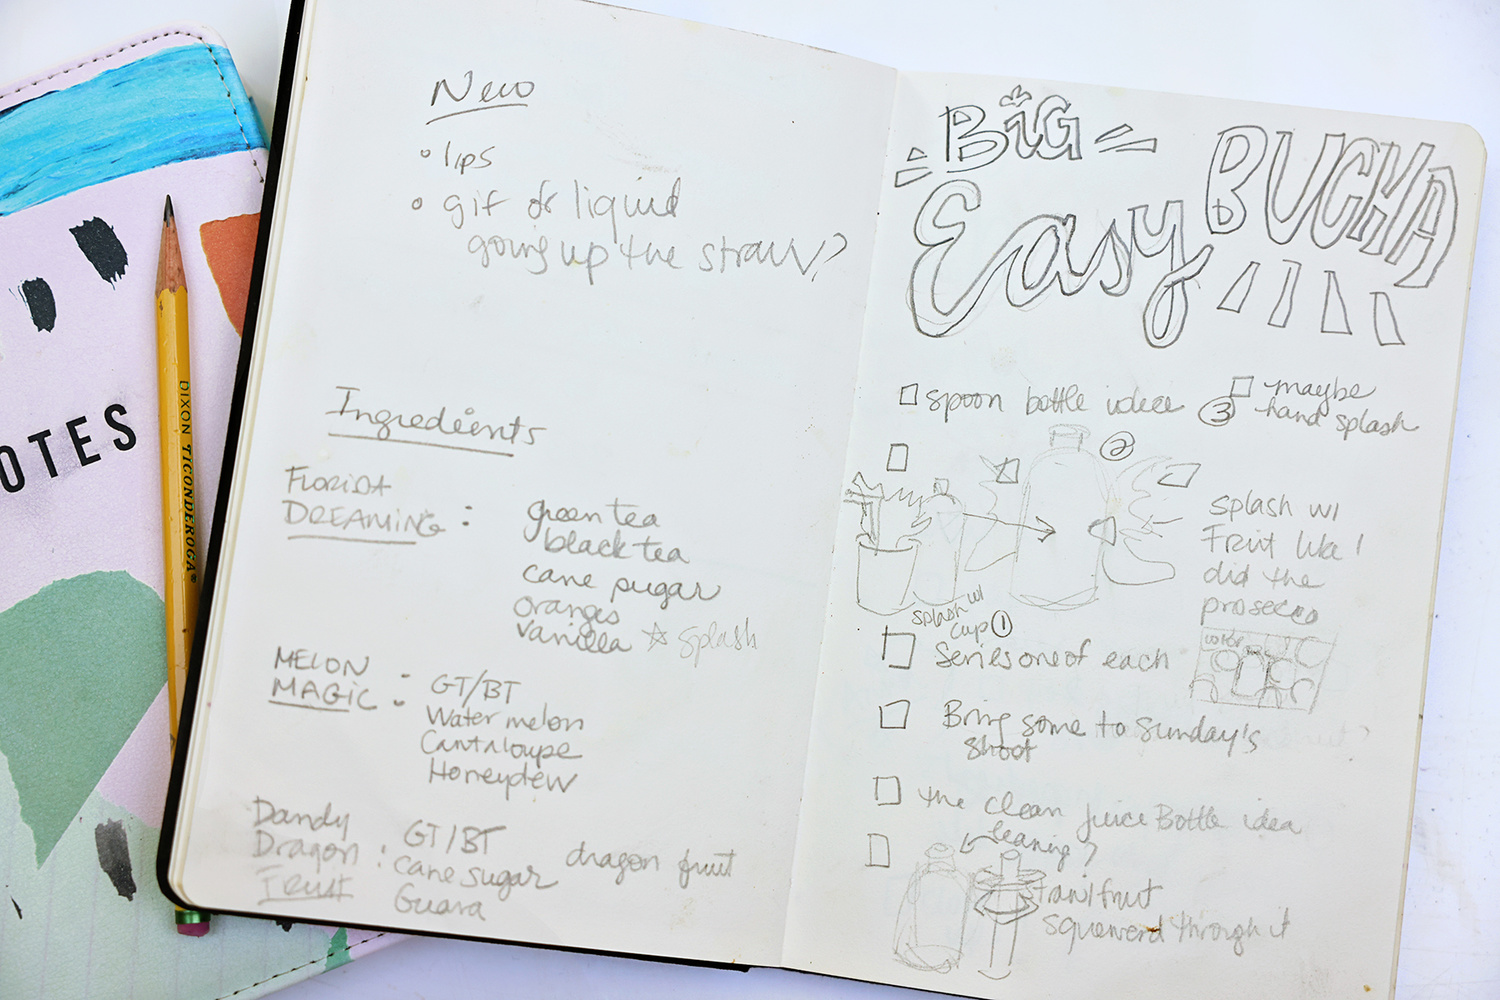 OTES
DIXON TICONDEROGA®
New
lips
gif of liquid
going up the straw?
Ingredients
FLORIDA
DREAMING :
green tea
black tea
cane sugar
oranges
vanilla ☆ splash
MELON
MAGIC :
GT/BT
Watermelon
Cantaloupe
Honeydew
Dandy
Dragon :
Fruit
GT/BT
cane sugar
Guava
dragon fruit
BiG
Easy
BUCHA
spoon bottle idea
③ maybe
hand splash
②
splash w/
cup ①
splash w/
Fruit like I
did the
prosecco
color
Series one of each
Bring some to Sunday's
shoot
the clean juice Bottle idea
leaning?
fruit
through it